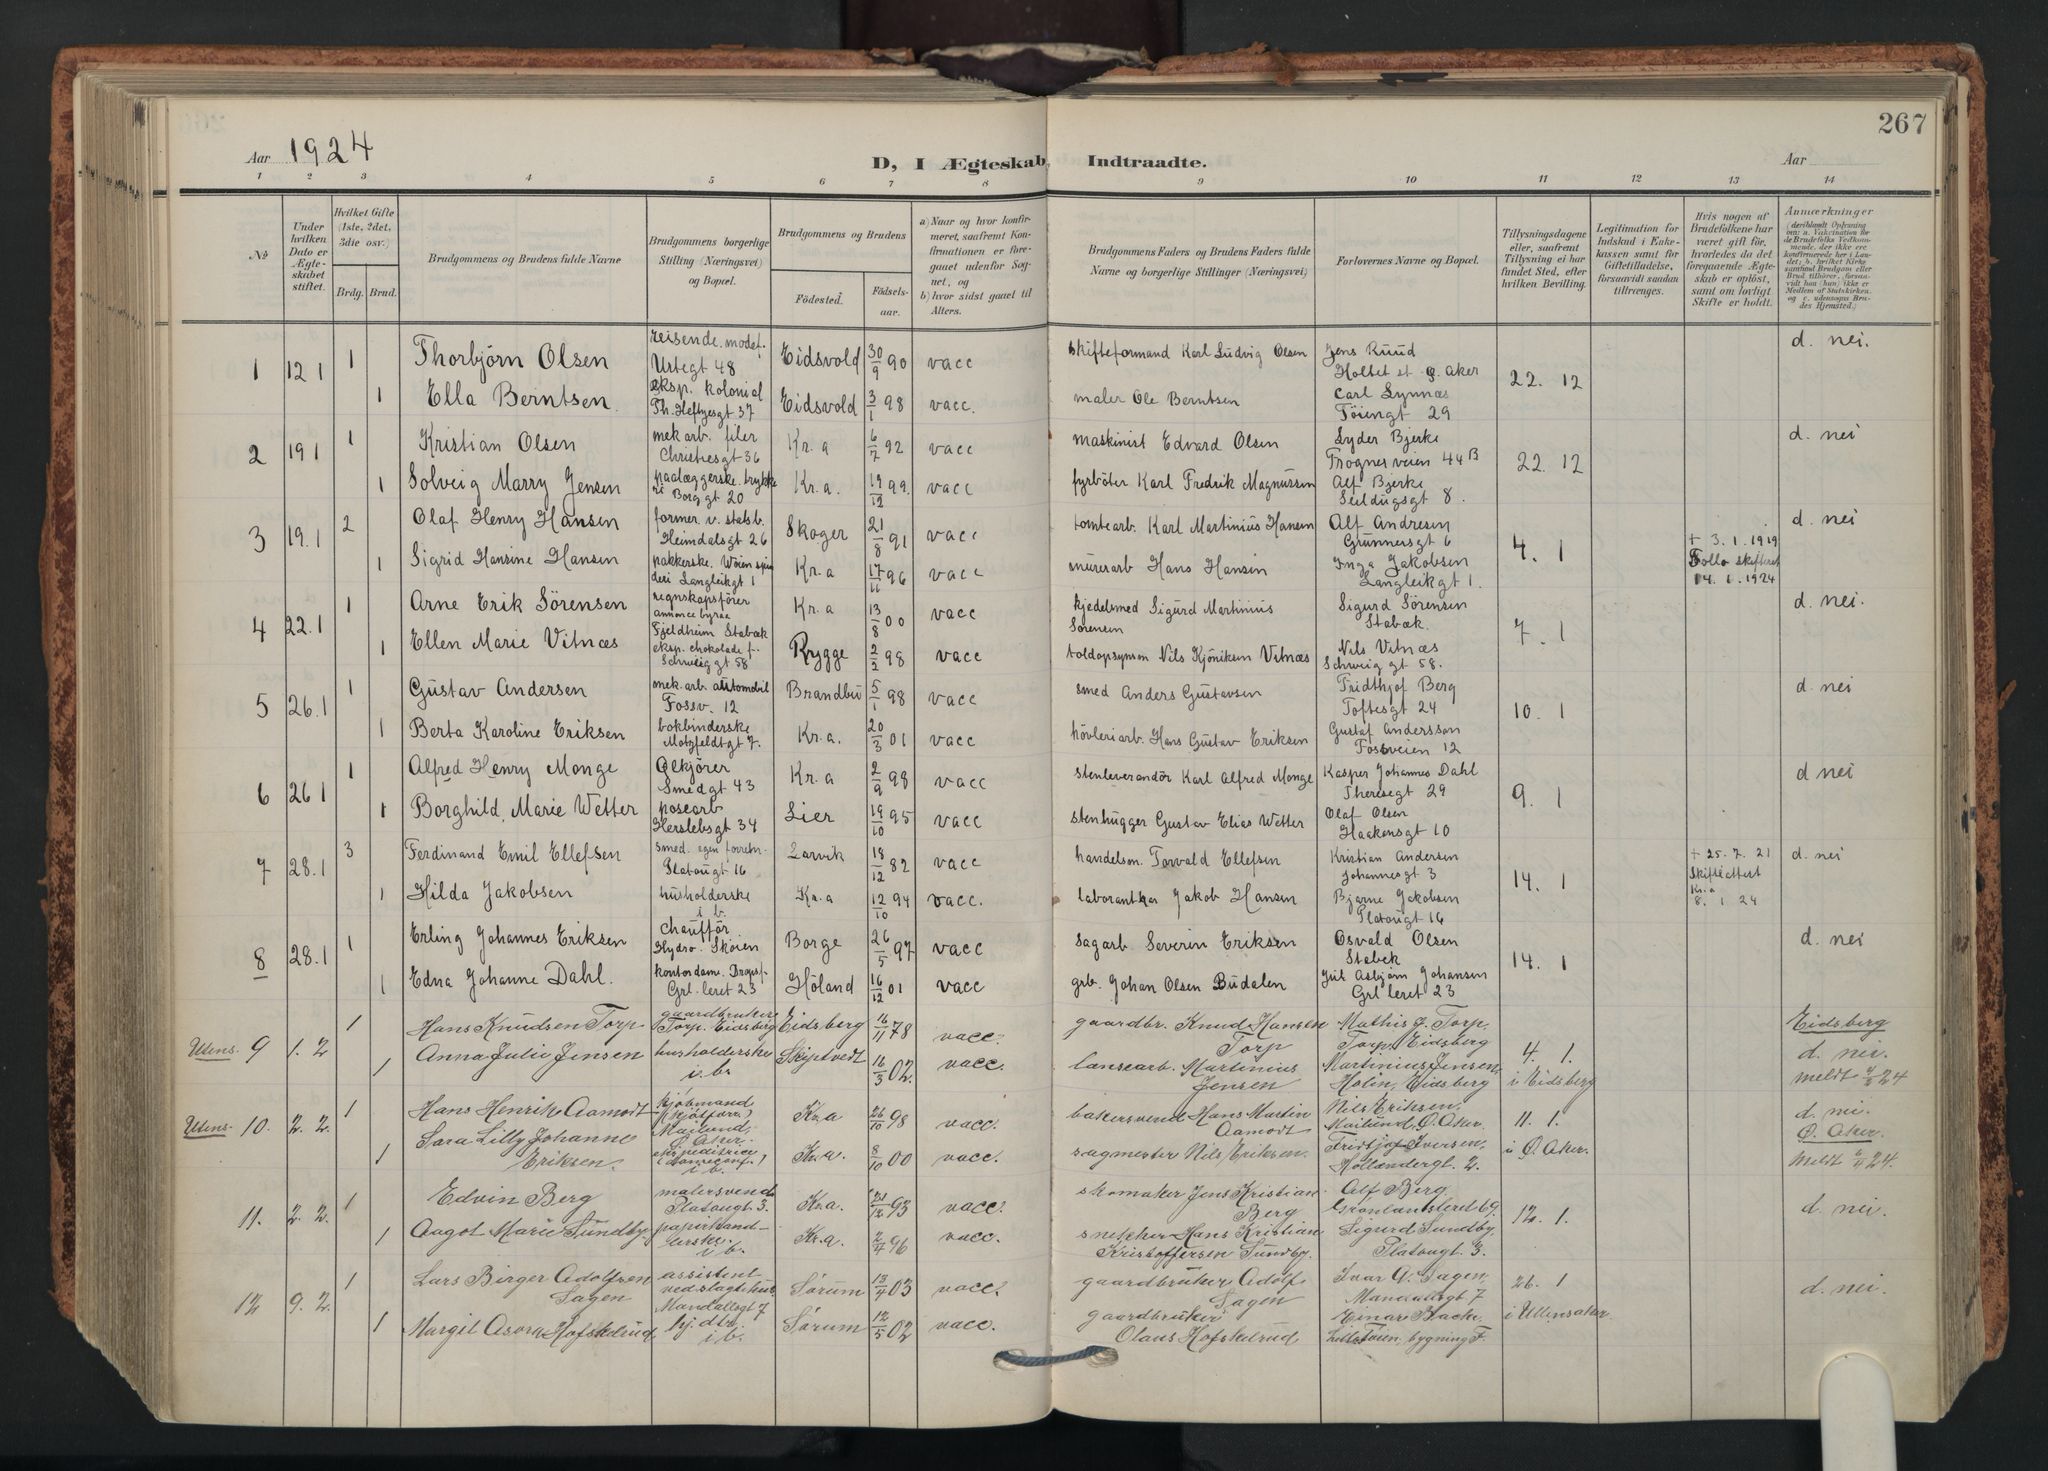 267
Aar 1924
D, I Ægteskab Indtraadte.
Aar
1 2 3 4 5 6 7 8 9 10 11 12 13 14
No
Under hvilken Dato er Ægteskabet stiftet.
Hvilket Gifte (1ste, 2det, 3die osv.)
Brdg. Brud.
Brudgommens og Brudens fulde Navne
Brudgommens borgerlige Stilling (Næringsvei) og Bopæl.
Brudgommens og Brudens
Fødested.
Fødselsaar.
a) Naar og hvor konfirmeret, saafremt Konfirmationen er foregaaet udenfor Sognet, og
b) hvor sidst gaaet til Alters.
Brudgommens Faders og Brudens Faders fulde Navne og borgerlige Stillinger (Næringsvei)
Forlovernes Navne og Bopæl.
Tillysningsdagene eller, saafremt Tillysning ei har fundet Sted, efter hvilken Bevilling.
Legitimation for Indskud i Enkekassen samt for Giftetilladelse, forsaavidt saadan tiltrænges.
Hvis nogen af Brudefolkene har været gift før, hvorledes da det foregaaende Ægteskab er opløst, samt om lovligt Skifte er holdt.
Anmærkninger
1 12 1 1 Thorbjörn Olsen reisende. modef. Urtegt 48 Eidsvold 30/9 90 vacc skifteformand Karl Ludvig Olsen Jens Ruud Holtet st Ø. Aker 22. 12 d. nei.
1 Ella Berntsen eksp. kolonial Th. Heftyesgt 37 Eidsvold 3/1 98 vacc. maler Ole Berntsen Carl Lynnæs Töiengt 29
2 19 1 1 Kristian Olsen mek arb. filer Christiesgt 36 Kr.a 6/7 92 vacc maskinist Edvard Olsen Lyder Bjerke Frognerveien 44B 22. 12 d. nei
1 Solveig Marry Jensen paalæggerske. trykkeri Borggt 20 Kr.a. 19/12 99. vacc fyrböter Karl Fredrik Magnussen Alf Bjerke Seildugsgt 8.
3 19.1 2 Olaf Henry Hansen former v. statsb. Heimdalsgt 26 Skoger 21/8 91 vacc tomtearb. Karl Martinius Hansen Alf Andresen Grünnersgt 6 4. 1 + 3.1.1919 Follo skifteret 14.1.1924 d. nei
1 Sigrid Hansine Hansen pakkerske. Wöien spinderi Langleikgt 1 Kr.a 17/11 96 vacc murerarb Hans Hansen Inga Jakobsen Langleikgt 1.
4 22.1 1 Arne Erik Sörensen regnskapsförer annonce byraa Fjeldheim Stabæk Kr.a 13/8 00 vacc kjedelsmed Sigurd Martinius Sörensen Sigurd Sörensen Stabæk. 7. 1 d. nei.
1 Ellen Marie Vitnæs eksp. chokolade f. Schweiggt 58 Rygge 2/2 98 vacc toldopsynsm Nils Kjöniksen Vitnæs Nils Vitnæs Schweiggt 58.
5 26.1 1 Gustav Andersen mek. arb. automobil Fossv. 12 Brandbu 5/1 98 vacc smed Anders Gustavsen Fridthjof Berg Toftesgt 24 10. 1 d. nei
1 Berta Karoline Eriksen bokbinderske Motzfeldtgt 7. Kr.a. 20/3 01 vacc hövleriarb. Hans Gustav Eriksen Gustaf Andersson Fossveien 12
6 26 1 1 Alfred Henry Monge Ölkjörer Smedgt 43 Kr.a 2/9 98 vacc stenleverandör Karl Alfred Monge Kasper Johannes Dahl Theresegt 29 9. 1 d nei
1 Borghild Marie Wetter posearb Herslebsgt 34 Lier 19/10 95 vacc stenhugger Gustav Elias Wetter Olaf Olsen Haakensgt 10
7 28.1 3 Ferdinand Emil Ellefsen smed. egen forretn. Platougt 16 Larvik 18/12 82 vacc handelsm. Torvald Ellefsen Kristian Andersen Johannesgt 3 14. 1 + 25. 7. 21 Skifteattest Kr.a 8. 1 24 d. nei
1 Hilda Jakobsen husholderske i b. Kr.a 12/10 94 vacc. Jakob Hansen Bjarne Jakobsen Platougt 16
8 28.1 1 Erling Johannes Eriksen chaufför. Hydro. Sköien Borge 26/5 97 vacc sagarb. Severin Eriksen Osvald Olsen Stabek 14. 1 d. nei
1 Edna Johanne Dahl. kontordame. Dropsf. Grl. leret 23 Höland 16/12 01 vacc grb. Johan Olsen Budalen Jul Asbjørn Johansen Grl leret 23
Utens. 9 1. 2 1 Hans Knudsen Torp gaardbruker Torp. Eidsberg Eidsberg 16/11 78 vacc. gaardbr. Knud Hansen Torp Mathis J. Torp. Torp, Eidsberg 4. 1. i Eidsberg Eidsberg d. nei. meldt 24
1 Anna Julie Jensen husholderske i. b. Skiptvedt 16/3 02. vacc. lænsearb. Martinius Jensen Martinius Jensen Holin, Eidsberg
Utens. 10. 2. 2. 1 Hans Henrik Aamodt kjöbmand (kjötforr.) Mailund, Ö Aker. Kr.a 26/10 98 vacc. bakersvend Hans Martin Aamodt Nils Eriksen. Mailund, Ø. Aker. 11. 1. i Ø. Aker. d. nei. Ø. Aker. Meldt 24.
1 Sara Lilly Johanne Eriksen. ekspeditrice i b. Kr.a. 8/10 00 vacc. sagmester Nils Eriksen. Fridtjof Iversen, Hollendergt. 2.
11. 2. 2. 1 Edvin Berg malersvend Platougt 3. Kr.a. 21/12 93 vacc. skomaker Jens Kristian Berg Alf Berg Grönlandsleret 69. 12. 1. d. nei.
1 Aagot Marie Sundby papirhandlerske. i b. Kr.a. 2/4 96 vacc. snekker Hans Kristian Kristoffersen Sundby. Sigurd Sundby, Platougt. 3.
12 9. 2. 1 Lars Birger Adolfsen Sagen assistent ved slagtehus Mandalsgt 7 Sørum 13/4 03 vacc. gaardbruker Adolf Sagen Ivar A. Sagen, Mandalsgt 7 26. 1 i Ullensaker d. nei.
1 Margit Asora Hofskelrud hj. dtr. i b. Sørum 12/5 02 vacc. gaardbruker Olaus Hofskelrud Einar Bache, Lille Töien, bygning F.